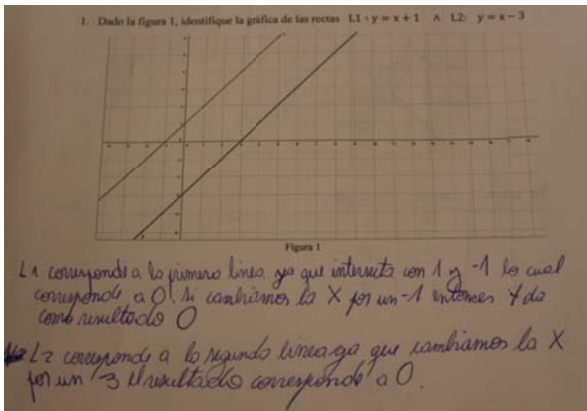 1. Dado la figura 1, identifique la gráfica de las rectas L1 : y = x + 1 ∧ L2: y = x − 3
Figura 1
L1 corresponde a la primera linea ya que intersecta con 1 y -1 lo cual
corresponde a 0. Si cambiamos la X por un -1 entonces Y da
como resultado 0
L2 corresponde a la segunda linea ya que cambiamos la X
por un 3 el resultado corresponde a 0.